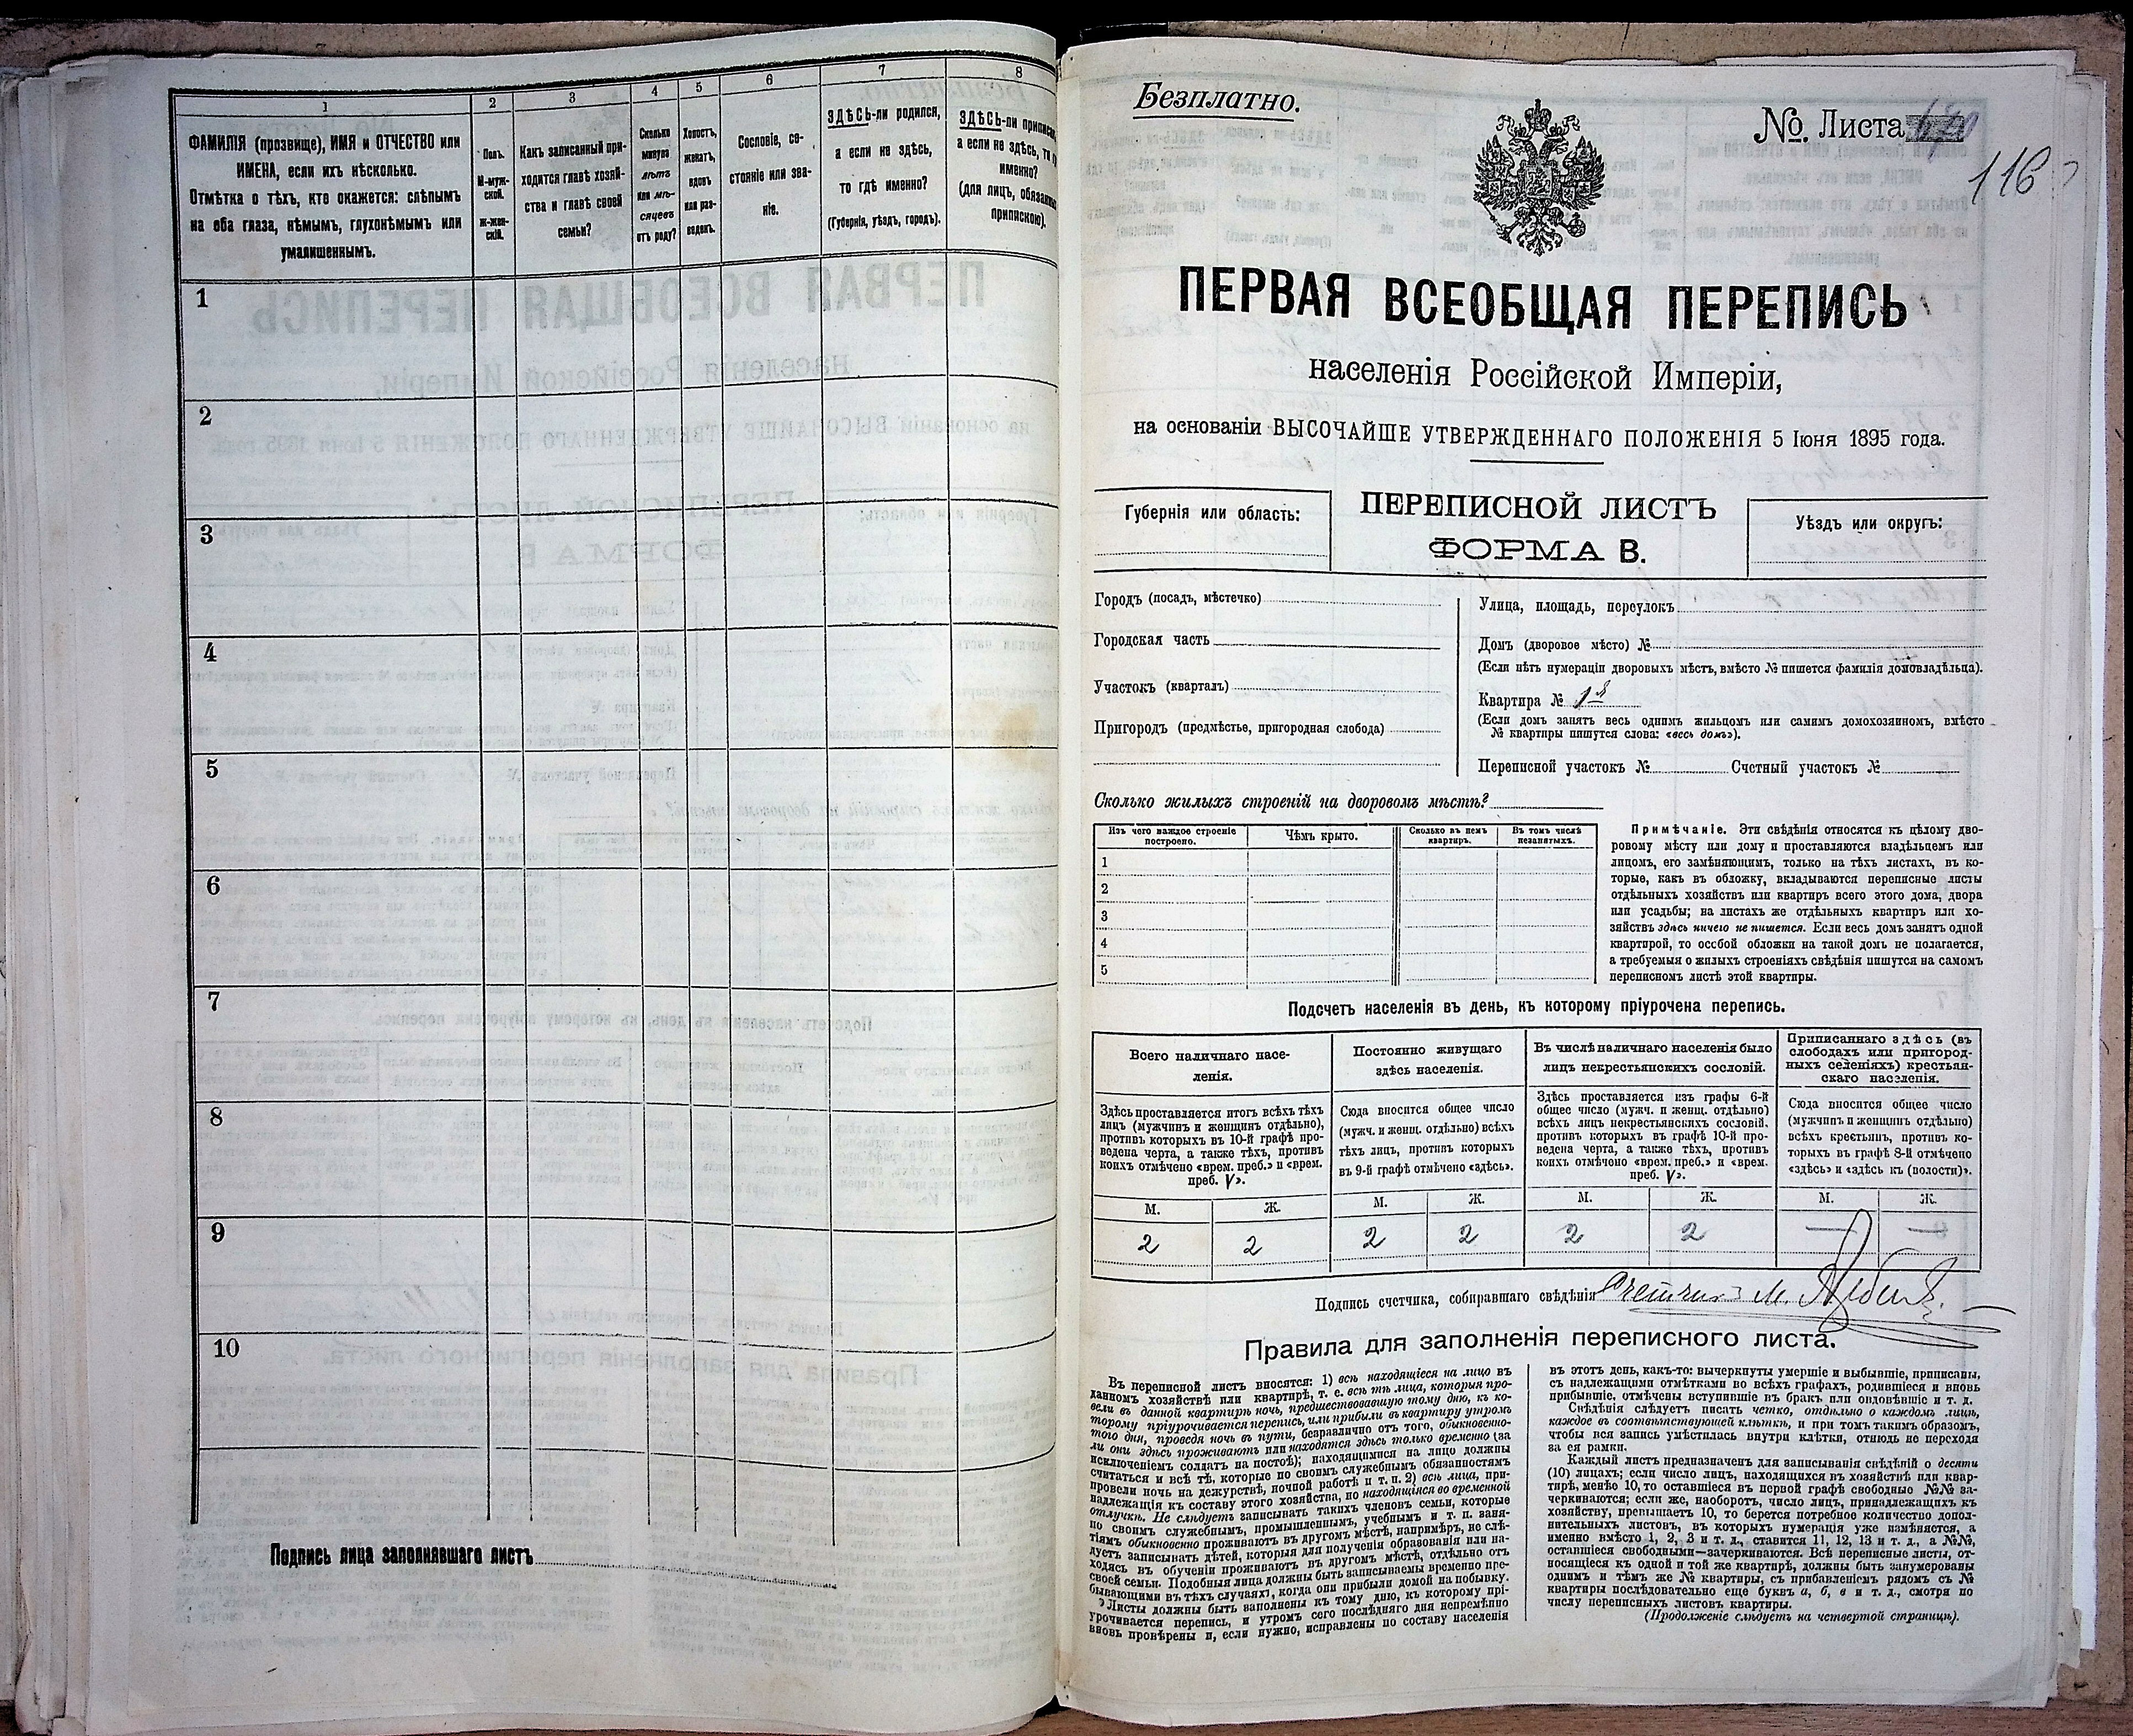 1
2
3
4
5
6
7
8
ФАМИЛІЯ (прозвище), ИМЯ и ОТЧЕСТВО или
ИМЕНА, если ихъ нѣсколько.
Отмѣтка о тѣхъ, кто окажется: слѣпымъ
на оба глаза, нѣмымъ, глухонѣмымъ или
умалишеннымъ.
Полъ.
М-муж-
ской.
Ж-жен-
скій.
Какъ записанный при-
ходится главѣ хозяй-
ства и главѣ своей
семьи?
Сколько
минуло
лѣтъ
или мѣ-
сяцевъ
отъ роду?
Холостъ,
женатъ,
вдовъ
или раз-
веденъ.
Сословіе, со-
стояніе или зва-
ніе.
ЗДѢСЬ-ли родился,
а если не здѣсь,
то гдѣ именно?
(Губернія, уѣздъ, городъ).
ЗДѢСЬ-ли приписан
а если не здѣсь, то
именно?
(для лицъ, обязанны
припискою).
1
2
3
4
5
6
7
8
9
10
Подпись лица заполнявшаго листъ
Безплатно.
№. Листа
116
ПЕРВАЯ ВСЕОБЩАЯ ПЕРЕПИСЬ
населенія Россійской Имперіи,
на основаніи ВЫСОЧАЙШЕ УТВЕРЖДЕННАГО ПОЛОЖЕНІЯ 5 Іюня 1895 года.
Губернія или область:
ПЕРЕПИСНОЙ ЛИСТЪ
ФОРМА В.
Уѣздъ или округъ:
Городъ (посадъ, мѣстечко)
Городская часть
Участокъ (кварталъ)
Пригородъ (предмѣстье, пригородная слобода)
Улица, площадь, переулокъ
Домъ (дворовое мѣсто) №
(Если нѣтъ нумераціи дворовыхъ мѣстъ, вмѣсто № пишется фамилія домовладѣльца).
Квартира № 1й
(Если домъ занятъ весь однимъ жильцомъ или самимъ домохозяиномъ, вмѣсто
№ квартиры пишутся слова: «весь домъ»).
Переписной участокъ № Счетный участокъ №
Сколько жилыхъ строеній на дворовомъ мѣстѣ?
Изъ чего каждое строеніе
построено.
Чѣмъ крыто.
Сколько въ немъ
квартиръ.
Въ томъ числѣ
незанятыхъ.
1
2
3
4
5
Примѣчаніе. Эти свѣдѣнія относятся къ цѣлому дво-
ровому мѣсту или дому и проставляются владѣльцемъ или
лицомъ, его замѣняющимъ, только на тѣхъ листахъ, въ ко-
торые, какъ въ обложку, вкладываются переписные листы
отдѣльныхъ хозяйствъ или квартиръ всего этого дома, двора
или усадьбы; на листахъ же отдѣльныхъ квартиръ или хо-
зяйствъ здѣсь ничего не пишется. Если весь домъ занятъ одной
квартирой, то особой обложки на такой домъ не полагается,
а требуемыя о жилыхъ строеніяхъ свѣдѣнія пишутся на самомъ
переписномъ листѣ этой квартиры.
Подсчетъ населенія въ день, къ которому пріурочена перепись.
Всего наличнаго насе-
ленія.
Постоянно живущаго
здѣсь населенія.
Въ числѣ наличнаго населенія было
лицъ некрестьянскихъ сословій.
Приписаннаго здѣсь (въ
слободахъ или пригород-
ныхъ селеніяхъ) крестьян-
скаго населенія.
Здѣсь проставляется итогъ всѣхъ тѣхъ
лицъ (мужчинъ и женщинъ отдѣльно),
противъ которыхъ въ 10-й графѣ про-
ведена черта, а также тѣхъ, противъ
коихъ отмѣчено «врем. преб.» и «врем.
преб. V».
Сюда вносится общее число
(мужч. и женщ. отдѣльно) всѣхъ
тѣхъ лицъ, противъ которыхъ
въ 9-й графѣ отмѣчено «здѣсь».
Здѣсь проставляется изъ графы 6-й
общее число (мужч. и женщ. отдѣльно)
всѣхъ лицъ некрестьянскихъ сословій,
противъ которыхъ въ графѣ 10-й про-
ведена черта, а также тѣхъ, противъ
коихъ отмѣчено «врем. преб.» и «врем.
преб. V».
Сюда вносится общее число
(мужчинъ и женщинъ отдѣльно)
всѣхъ крестьянъ, противъ ко-
торыхъ въ графѣ 8-й отмѣчено
«здѣсь» и «здѣсь къ (волости)».
М. Ж. М. Ж. М. Ж. М. Ж.
2 2 2 2 2 2 — —
Подпись счетчика, собиравшаго свѣдѣнія Счетчикъ М.
Правила для заполненія переписного листа.
Въ переписной листъ вносятся: 1) всѣ находящіеся на лицо въ
данномъ хозяйствѣ или квартирѣ, т. е. всѣ тѣ лица, которыя про-
вели въ данной квартирѣ ночь, предшествовавшую тому дню, къ ко-
торому пріурочивается перепись, или прибыли въ квартиру утромъ
того дня, проведя ночь въ пути, безразлично отъ того, обыкновенно-
ли они здѣсь проживаютъ или находятся здѣсь только временно (за
исключеніемъ солдатъ на постоѣ); находящимися на лицо должны
считаться и всѣ тѣ, которые по своимъ служебнымъ обязанностямъ
провели ночь на дежурствѣ, ночной работѣ и т. п. 2) всѣ лица, при-
надлежащія къ составу этого хозяйства, но находящіяся во временной
отлучкѣ. Не слѣдуетъ записывать такихъ членовъ семьи, которые
по своимъ служебнымъ, промышленнымъ, учебнымъ и т. п. заня-
тіямъ обыкновенно проживаютъ въ другомъ мѣстѣ, напримѣръ, не слѣ-
дуетъ записывать дѣтей, которыя для полученія образованія или на-
ходясь въ обученіи проживаютъ въ другомъ мѣстѣ, отдѣльно отъ
своей семьи. Подобныя лица должны быть записываемы временно пре-
бывающими въ тѣхъ случаяхъ, когда они прибыли домой на побывку.
Листы должны быть заполнены къ тому дню, къ которому прі-
урочивается перепись, и утромъ сего послѣдняго дня непремѣнно
вновь провѣрены и, если нужно, исправлены по составу населенія
въ этотъ день, какъ-то: вычеркнуты умершіе и выбывшіе, приписаны,
съ надлежащими отмѣтками во всѣхъ графахъ, родившіеся и вновь
прибывшіе, отмѣчены вступившіе въ бракъ или овдовѣвшіе и т. д.
Свѣдѣнія слѣдуетъ писать четко, отдѣльно о каждомъ лицѣ,
каждое въ соотвѣтствующей клѣткѣ, и при томъ такимъ образомъ,
чтобы вся запись умѣстилась внутри клѣтки, отнюдь не переходя
за ея рамки.
Каждый листъ предназначенъ для записыванія свѣдѣній о десяти
(10) лицахъ; если число лицъ, находящихся въ хозяйствѣ или квар-
тирѣ, менѣе 10, то оставшіеся въ первой графѣ свободные №№ за-
черкиваются; если же, наоборотъ, число лицъ, принадлежащихъ къ
хозяйству, превышаетъ 10, то берется потребное количество допол-
нительныхъ листовъ, въ которыхъ нумерація уже измѣняется, а
именно вмѣсто 1, 2, 3 и т. д., ставится 11, 12, 13 и т. д., а №№,
оставшіеся свободными—зачеркиваются. Всѣ переписные листы, от-
носящіеся къ одной и той же квартирѣ, должны быть занумерованы
однимъ и тѣмъ же № квартиры, съ прибавленіемъ рядомъ съ №
квартиры послѣдовательно еще буквъ а, б, в и т. д., смотря по
числу переписныхъ листовъ квартиры.
(Продолженіе слѣдуетъ на четвертой страницѣ).